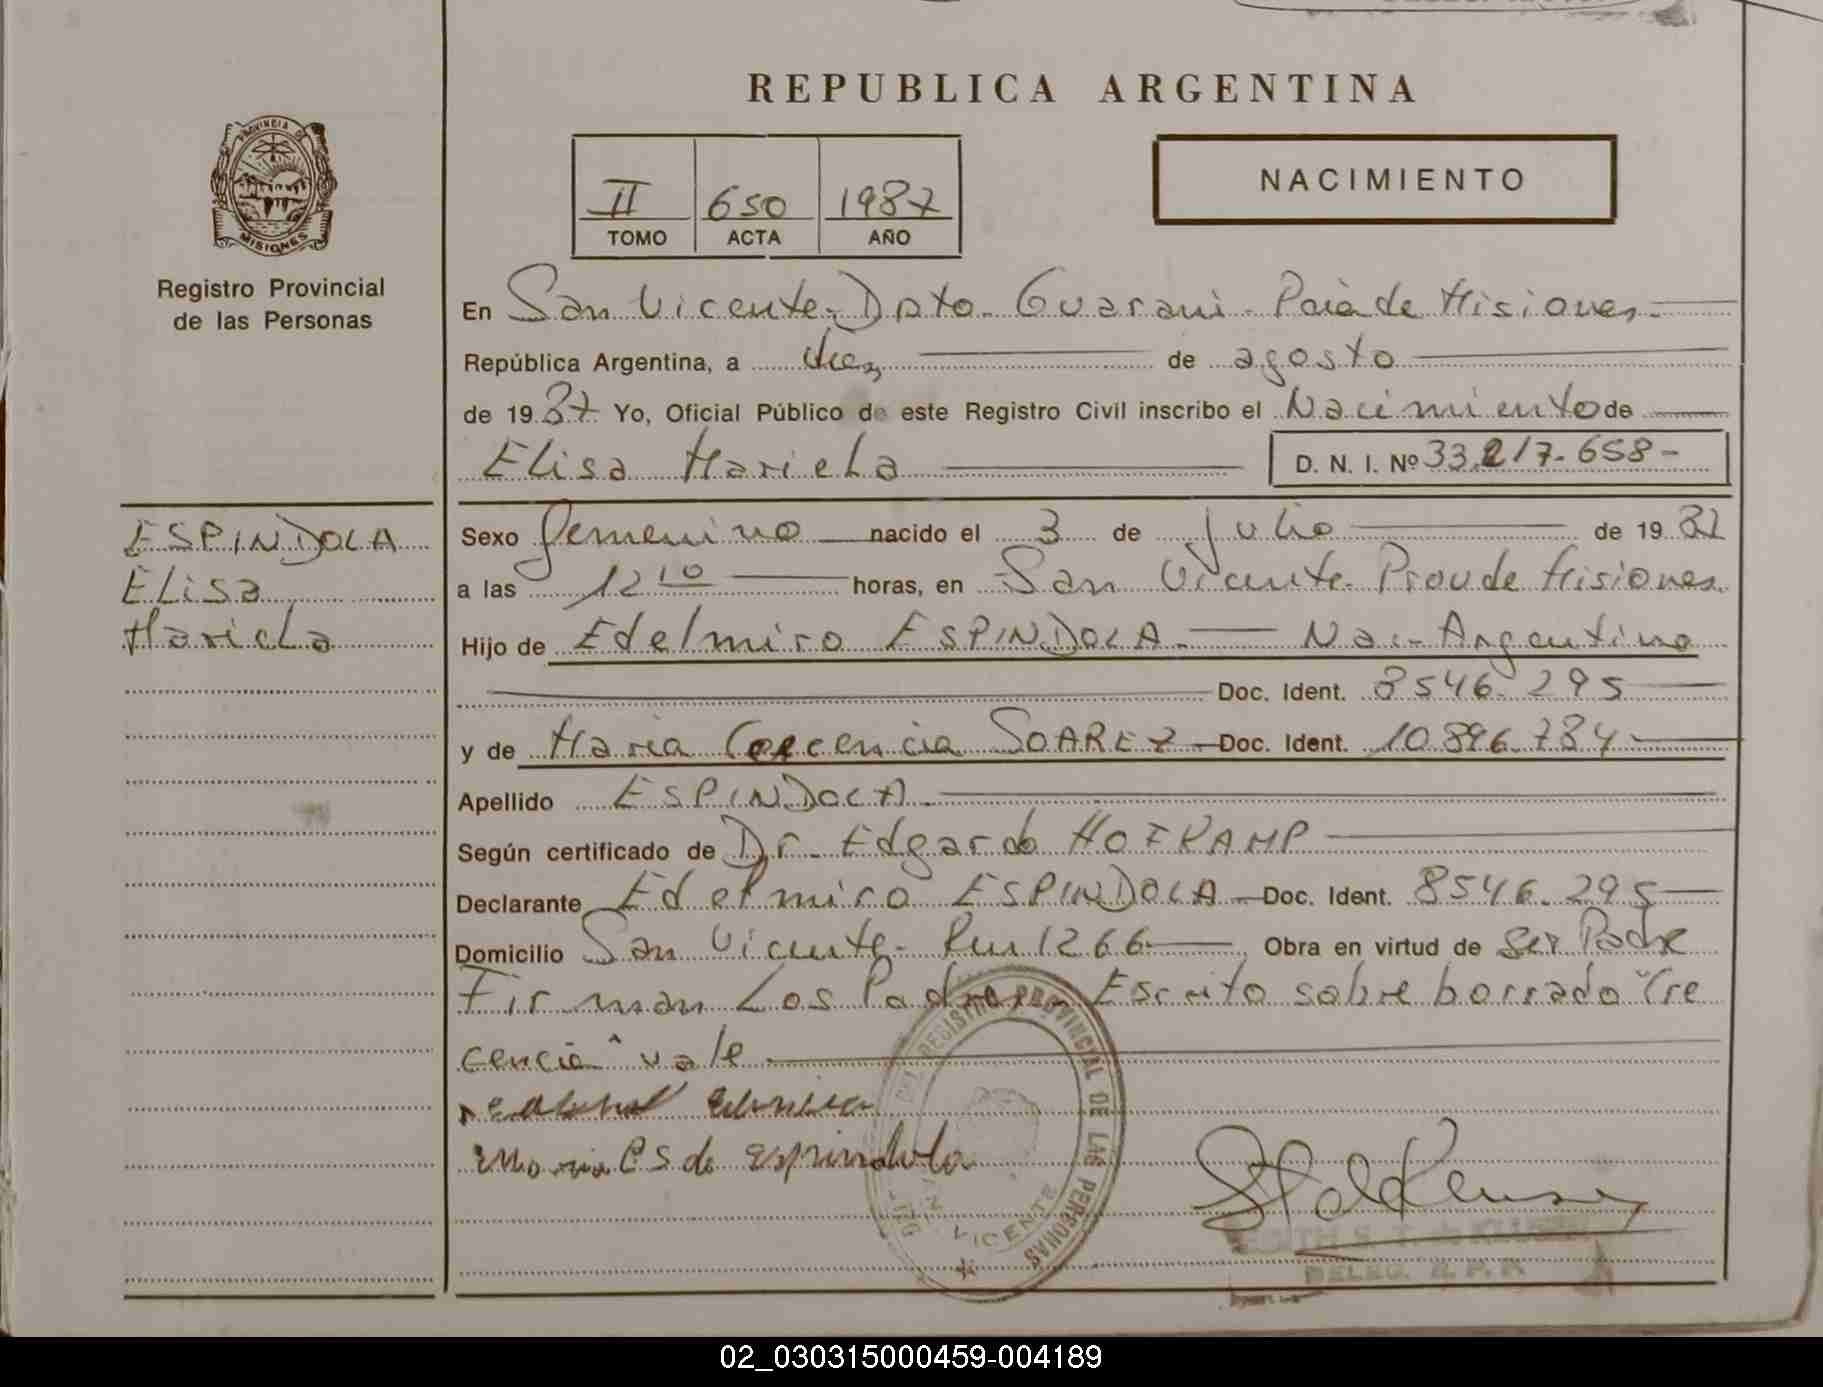 REPUBLICA ARGENTINA
PROVINCIA DE
MISIONES
Registro Provincial
de las Personas
II 650 1987
TOMO ACTA AÑO
NACIMIENTO
En San Vicente - Dpto - Guarani - Pcia de Misiones -
República Argentina, a diez de agosto
de 1987 Yo, Oficial Público de este Registro Civil inscribo el Nacimiento de
Elisa Mariela D. N. I. Nº 33.217.658 -
ESPINDOLA
Elisa
Mariela
Sexo femenino nacido el 3 de Julio de 1987
a las 12 10 horas, en San Vicente - Prov de Misiones.
Hijo de Edelmiro ESPINDOLA - Nac - Argentino
Doc. Ident. 8546.295
y de Maria Crecencia SOAREZ - Doc. Ident. 10.896.784
Apellido ESPINDOLA -
Según certificado de Dr - Edgardo HOFKAMP
Declarante Edelmiro ESPINDOLA - Doc. Ident. 8546.295
Domicilio San Vicente - Km 1266 - Obra en virtud de ser Padre
Firman Los Padres - Escrito sobre borrado "Cre
cencia" vale
Maria C S de Espindola
DEL REGISTRO PROVINCIAL DE LAS PERSONAS
SAN VICENTE
EDITH S. T. de KLUSEN
DELEG. R. P. P.
02_030315000459-004189